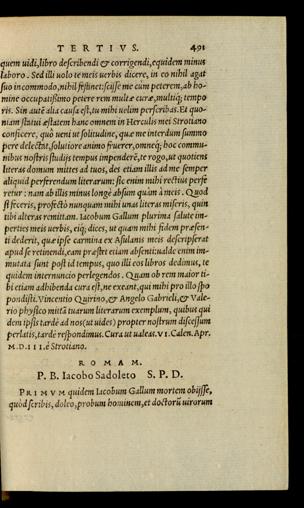 TERTIVS. 491
quem uidi, libro describendi & corrigendi, equidem minus
laboro. Sed illi uolo te meis uerbis dicere, in eo nihil agat
suo incommodo, nihil festinet: scisse me cum peterem, ab ho-
mine occupatissimo petere rem multæ curæ, multiq; tempo
ris. Sin autē alia causa est, tu mihi uelim perscribas. Et quo-
niam statui æstatem hanc omnem in Herculis mei Strotiano
conficere, quò ueni ut solitudine, quæ me interdum summo
pere delectat, solutiore animo fruerer, omneq; hoc commu-
nibus nostris studijs tempus impenderē, te rogo, ut quotiens
literas domum mittes ad tuos, des etiam illis ad me semper
aliquid perferendum literarum: sic enim mihi rectius perfe
retur: nam ab illis minus longè absum quàm à meis. Quod
si feceris, profectò nunquam mihi unas literas miseris, quin
tibi alteras remittam. Iacobum Gallum plurima salute im-
perties meis uerbis, eiq; dices, ut quam mihi fidem præsen-
ti dederit, quæ ipse carmina ex Asulanis meis descripserat
apud se retinendi, eam præstet etiam absenti: ualde enim im-
mutata sunt post id tempus, quo illi eos libros dedimus, te
quidem internuncio perlegendos. Quam ob rem maior ti-
bi etiam adhibenda cura est, ne exeant, qui mihi pro illo spo
pondisti. Vincentio Quirino, & Angelo Gabrieli, & Vale-
rio physico mittā tuarum literarum exemplum, quibus qui
dem ipsis tardè ad nos (ut uides) propter nostrum discessum
perlatis, tardè respondimus. Cura ut ualeas. VI. Calen. Apr.
M. D. III. è Strotiano.
ROMAM.
P. B. Iacobo Sadoleto S. P. D.
PRIMVM quidem Iacobum Gallum mortem obijsse,
quòd scribis, doleo, probum hominem, et doctorū uirorum